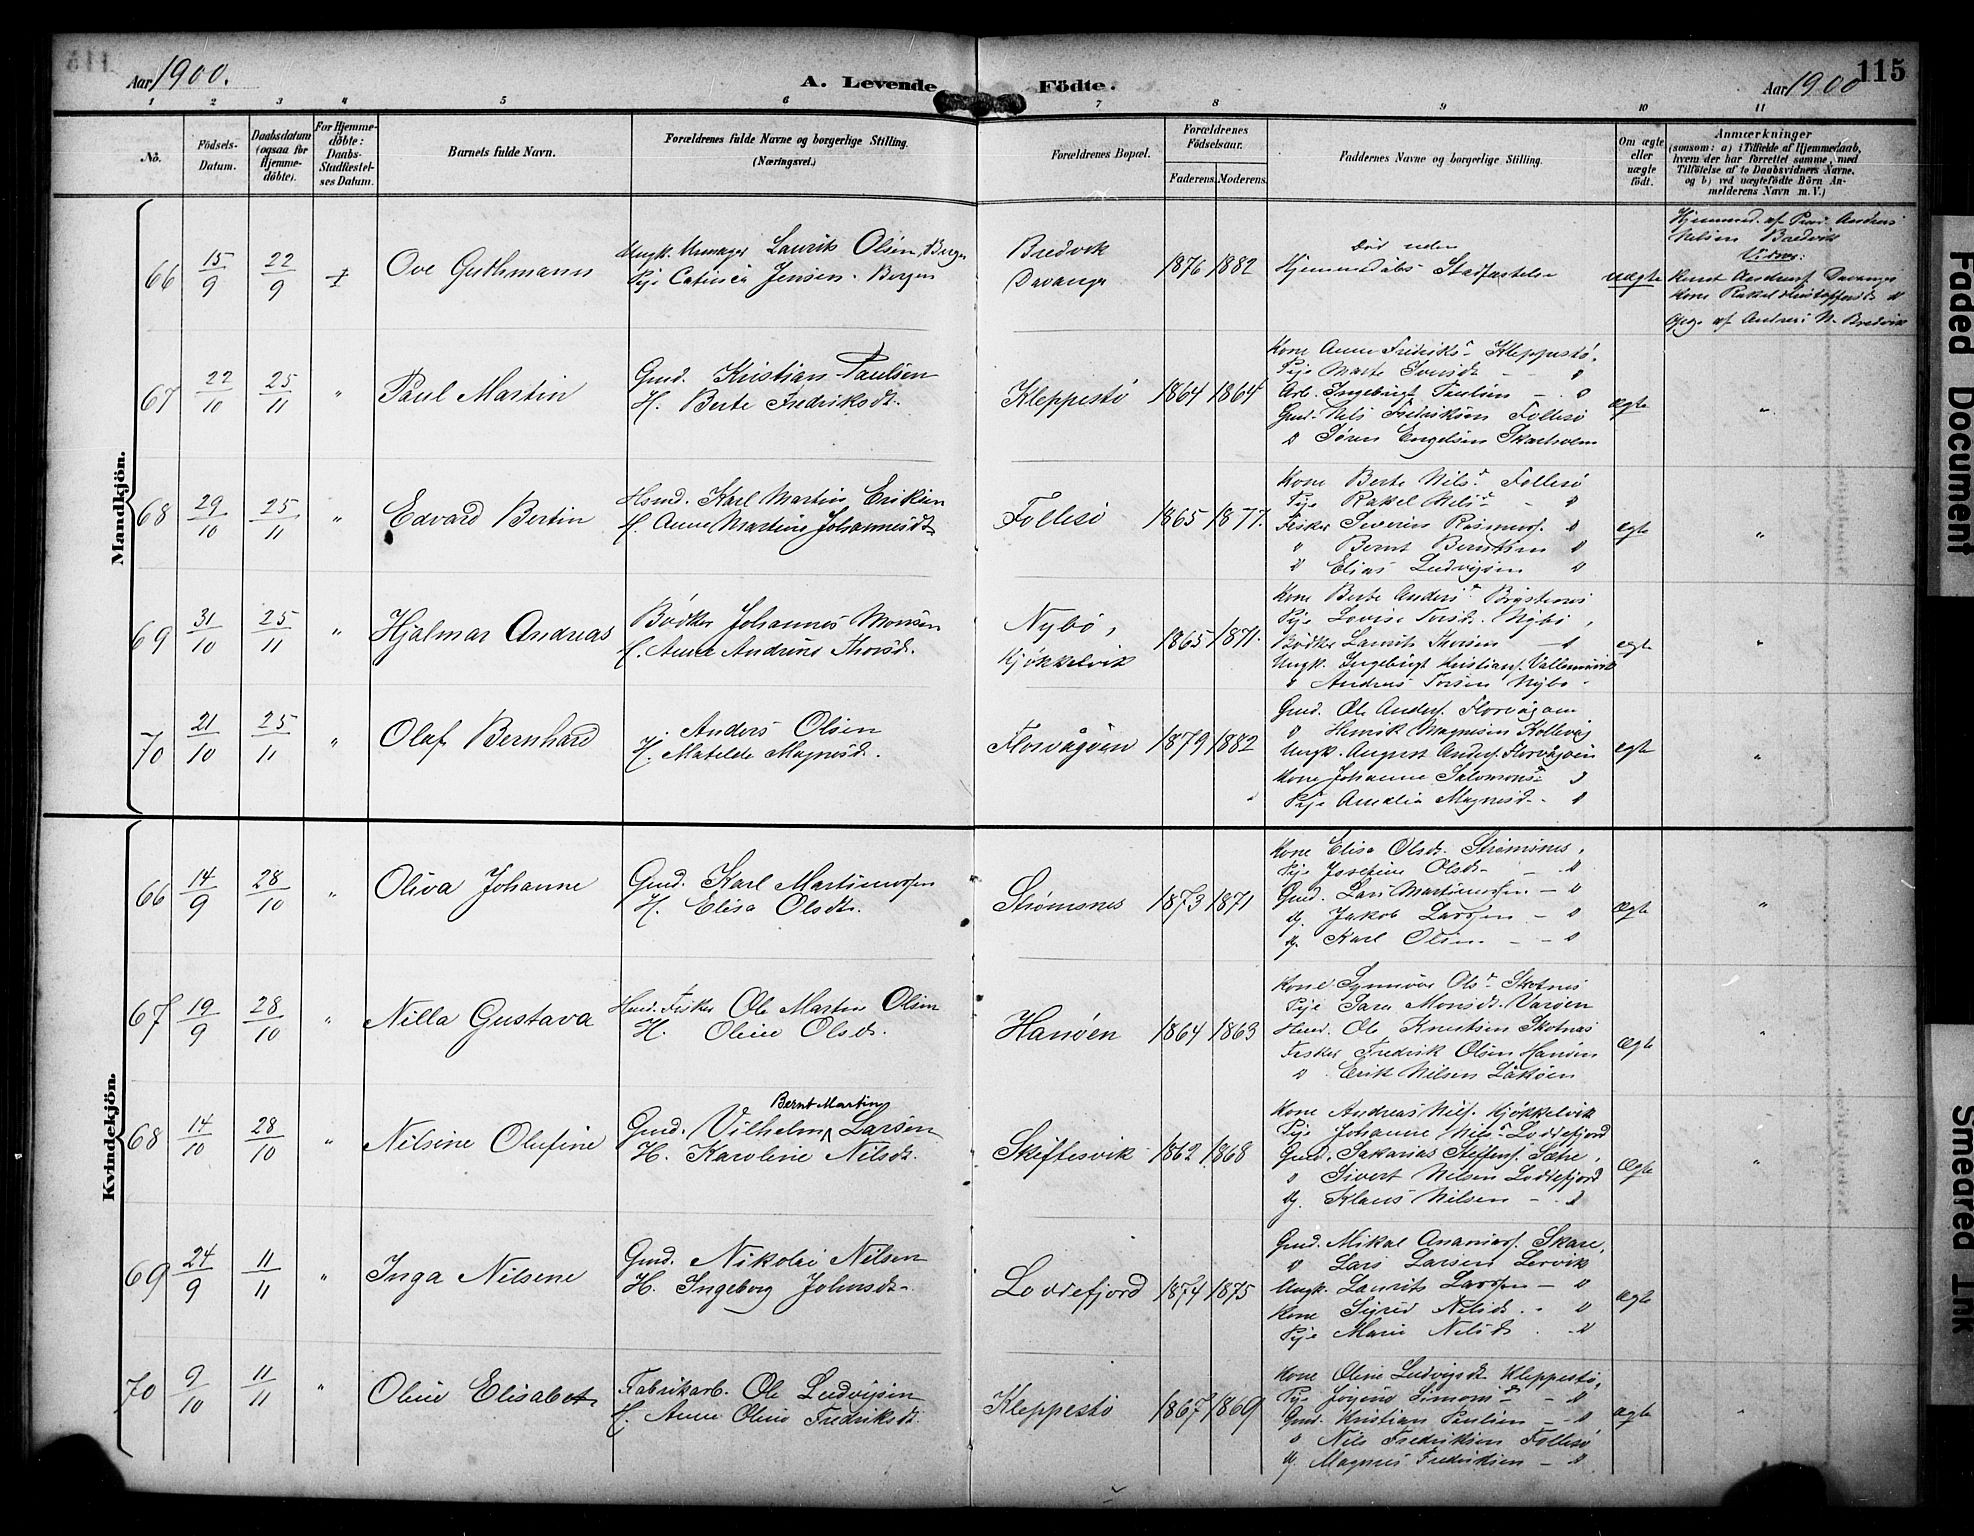 115
Aar 1900.
A. Levende Födte.
Aar 1900
1 2 3 4 5 6 7 8 9 10 11
No.
Födsels-Datum.
Daabsdatum (ogsaa for Hjemme-döbte).
For Hjemme-döbte: Daabs-Stadfæstel-ses Datum.
Barnets fulde Navn.
Forældrenes fulde Navne og borgerlige Stilling. (Næringsvei.)
Forældrenes Bopæl.
Forældrenes Födselsaar.
Faderens. Moderens.
Faddernes Navne og borgerlige Stilling.
Om ægte eller uægte födt.
Anmærkninger
(saasom: a) i Tilfælde af Hjemmedaab, hvem der har forrettet samme, med Tilföielse af to Daabsvidners Navne, og b) ved uægtefödte Börn An-melderens Navn m. V.)
Mandkjön.
66 15/9 22/9 Ove Guthmann
Ungk. Laurits Olsen, Bergen
Pige Catinca Jensen. Bergen
Bredvik
Davanger
1876 1882
Död uden
Hjemmedaabs Stadfæstelse
uægte
Hjemmed. af Anders
Nilsen Bredvik
Vidner:
Davanger
Kone Rakel
Opg. af Anders N. Bredvik
67 22/10 25/11 " Paul Martin
Gmd. Kristian Paulsen
H. Berte Fredriksdt.
Kleppestö 1864 1864
Kone Anne Fredriksd Kleppestö.
Pige Marte
Arb. Ingebrigt Paulsen
Gmd. Nils Fredriksen Follesö
Sören Engelsen Skarholm
ægte "
68 29/10 25/11 " Edvard Bertin
Hsmd. Karl Martin Eriksen
H. Anne Martine Johannesdt
Follesö 1865 1877.
Kone Berte Nilsd Follesö
Pige Rakel Nilsd
Fisker Severin Rasmuss.
" Bernt Berntsen
" Elias Ludvigsen
ægte "
69 31/10 25/11 " Hjalmar Andreas
Bödker Johannes Monsen
H. Anne Andrine Thorsd.
Nybö,
Kjøkkelvik
1865 1871.
Kone Berte Andersd
Pige Lovise Torsd. Nybö,
Bödker Laurits Thorsen
Ungk. Ingebrigt Kristians.
" Andreas Torsen Nybö
ægte "
70 21/10 25/11 " Olaf Bernhard
Anders Olsen
H. Matilde Magnusd.
Florvågöen 1879 1882
Gmd. Ole Anders. Florvågöen
" Henrik Magnesen Kollevåg
Ungk. August Anders. Florvågöen
Kone Johanne Salomonsd
Pige Amalia Magnesd.
ægte "
Kvindekjön.
66 14/9 28/10 " Oliva Johanne
Gmd. Karl Martinussen
H. Elisa Olsdt.
Strömsnes 1873 1871
Kone Elisa Olsdt. Strömsnes,
Pige Josefine Olsdt
Gmd. Lars Martinussen
dg. Jakob Larssen
dg. Karl Olsen
Ægte "
67 19/9 28/10 " Nilla Gustava
Hmd. Fisker Ole Martin Olsen
H. Oline Olsdt.
Hanöen 1864 1863
Kone Synnöve Olsd Skotnes
Pige Sara Monsdt. Varöen
Hmd. Ole Knutsen Skotnes
Fisker Fredrik Olsen Hanöen
" Erik Nilsen
Ægte "
68 14/10 28/10 " Nilsine Olufine
Bernt Martin
Gmd. Vilhelm Larsen
H. Karoline Nilsdt.
Skiftesvik 1862 1868
Kone Andreas Nils. Kjøkkelvik
Pige Johanne Nilsd Loddefjord
Gmd. Sakarias Steffens. Sætre,
" Sivert Nilsen Loddefjord
dg. Klaus Nilsen
Ægte "
69 24/9 11/11 " Inga Nilsene
Gmd. Nikolai Nilsen
H. Ingeborg Johnsdt.
Loddefjord 1874 1875
Gmd. Mikal Ananias. Skare,
" Lars Larsen Lervik
Ungk. Laurits Larssen
Kone Sigrid Nilsdt.
Pige Marie Nilsdt.
Ægte "
70 9/10 11/11 " Oline Elisabet
Fabrikarb. Ole Ludvigsen
H. Anne Oline Fredriksdt.
Kleppestö 1867 1869
Kone Oline Ludvigsdt Kleppestö,
Pige Simonsd
Gmd. Kristian Paulsen
" Nils Fredriksen Follesö
dg. Magnus Fredriksen
Ægte "
Faded Document
Smeared Ink